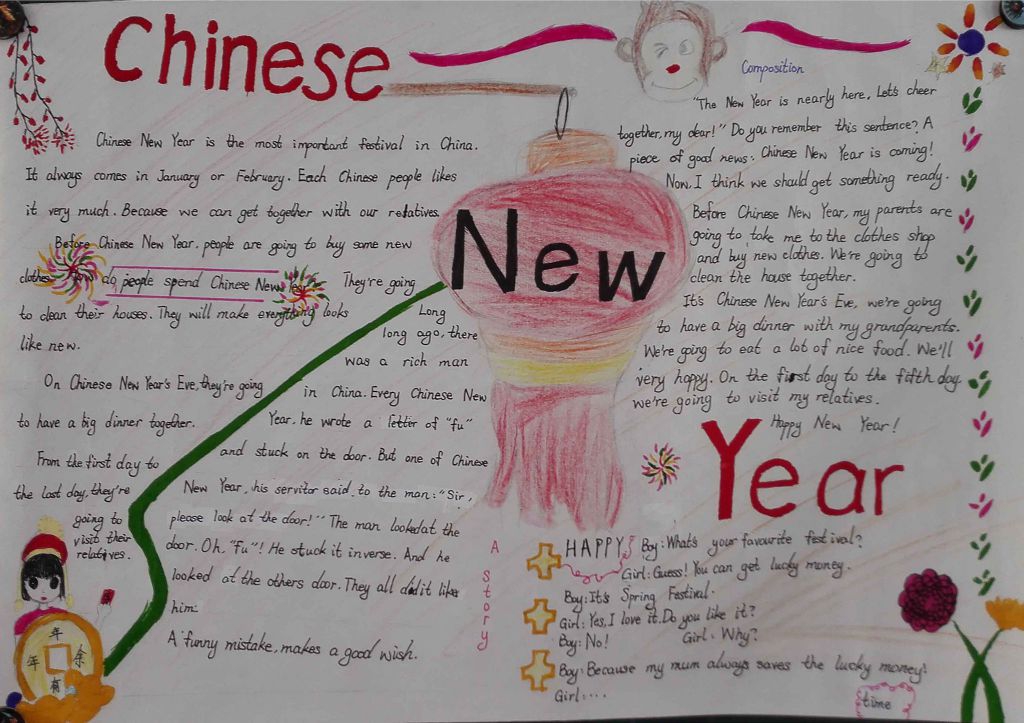 Chinese
New
Year
Chinese New Year is the most important festival in China.
It always comes in January or February. Each Chinese people likes
it very much. Because we can get together with our relatives.
Before Chinese New Year, people are going to buy some new
clothes. How do people spend Chinese New Year?
They're going
to clean their houses. They will make everything looks
like new.
On Chinese New Year's Eve, they're going
to have a big dinner together.
From the first day to
the last day, they're
going to
visit their
relatives.
年
年
余
有
Long
long ago, there
was a rich man
in China. Every Chinese New
Year, he wrote a letter of "fu"
and stuck on the door. But one of Chinese
New Year, his servitor said to the man: "Sir,
please look at the door!" The man lookedat the
door. Oh. "fu"! He stuck it inverse. And he
looked at the others door. They all did it like
him.
A funny mistake, makes a good wish.
A story
Composition
"The New Year is nearly here, Let's cheer
together, my dear!" Do you remember this sentence? A
piece of good news: Chinese New Year is coming!
Now, I think we should get something ready.
Before Chinese New Year, my parents are
going to take me to the clothes shop
and buy new clothes. We're going to
clean the house together.
It's Chinese New Year's Eve, we're going
to have a big dinner with my grandparents.
We're going to eat a lot of nice food. We'll
very happy. On the first day to the fifth day,
we're going to visit my relatives.
Happy New Year!
HAPPY
Boy: What's your favourite festival?
Girl: Guess! You can get lucky money.
Boy: It's Spring Festival.
Girl: Yes, I love it. Do you like it?
Boy: No! Girl: Why?
Boy: Because my mum always saves the lucky money!
Girl: ...
time